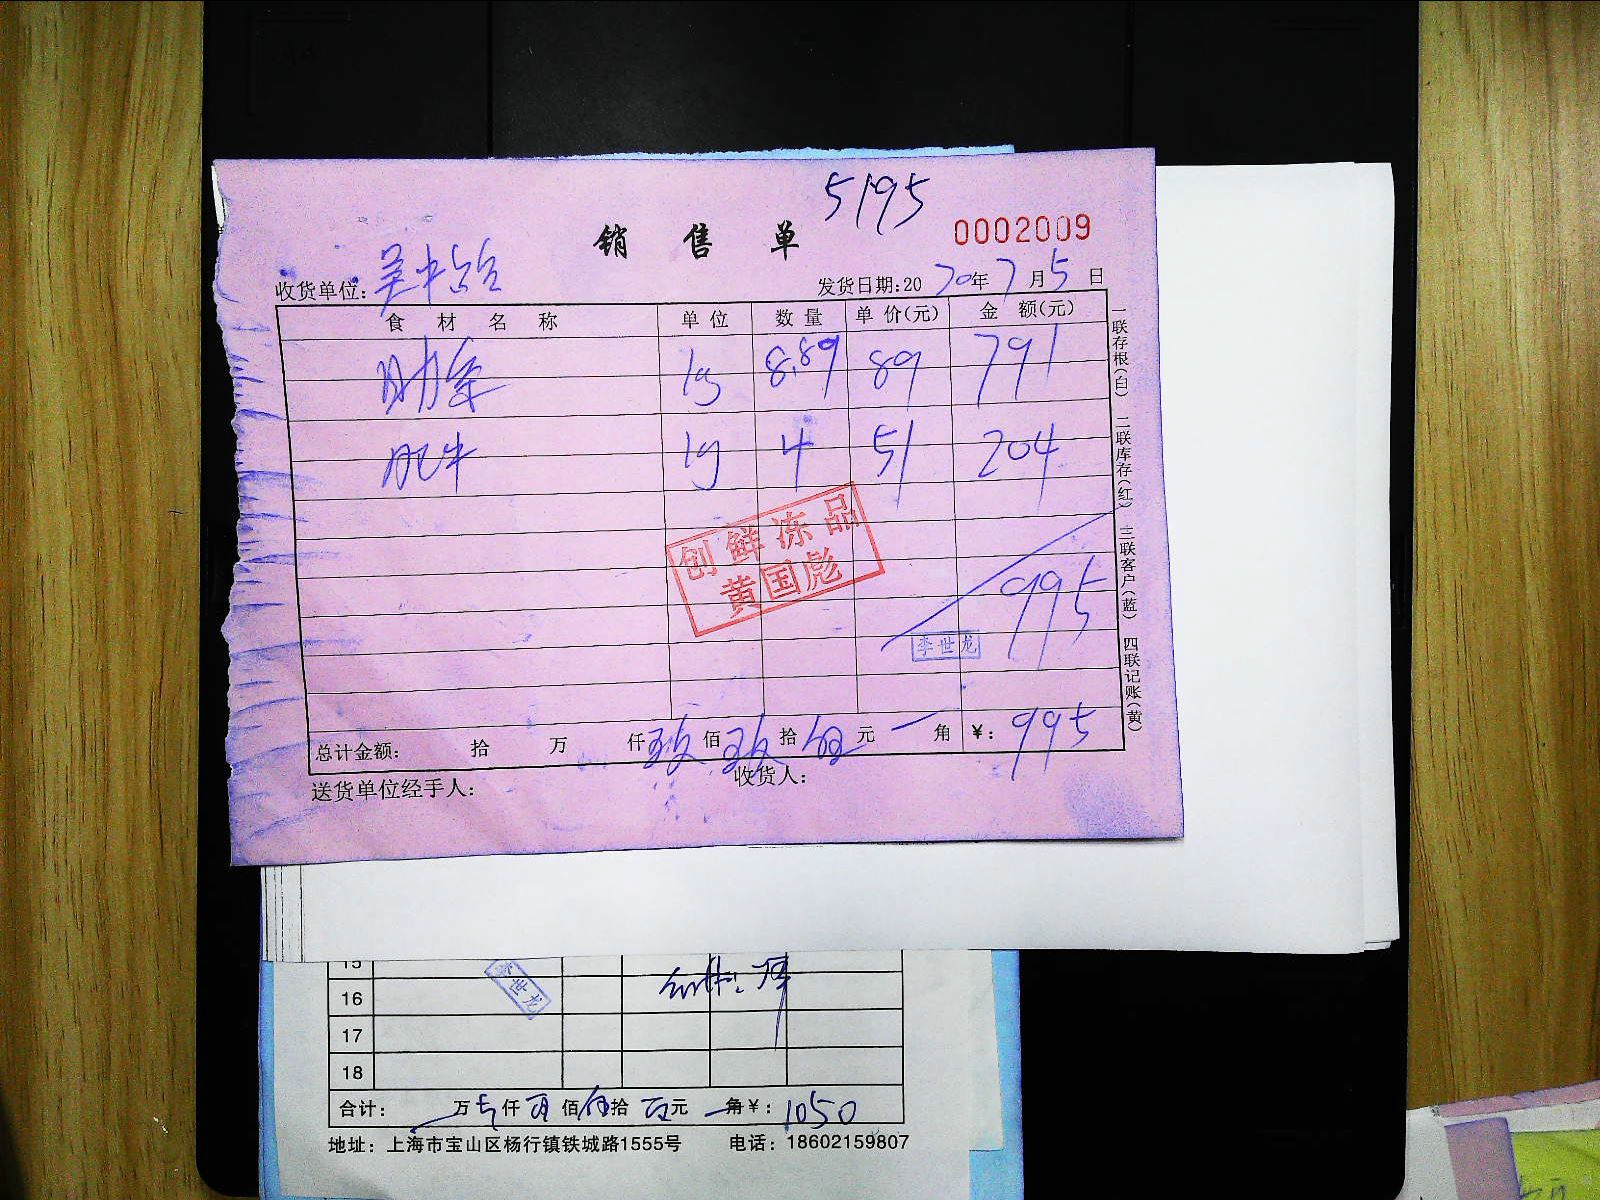 5195
销售单 0002009
收货单位: 吴中路店 发货日期:2020年7月5日
食材名称 单位 数量 单价(元) 金额(元)
肋条 kg 8.89 89 791
肥牛 kg 4 51 204
创鲜冻品
黄国彪
995
李世龙
总计金额: 拾 万 仟 玖佰 玖拾 伍元 一角 ¥: 995
送货单位经手人: 收货人:
一联存根(白) 二联库存(红) 三联客户(蓝) 四联记账(黄)
15
李世龙
16
17
18
合计: 万 仟 佰 伍拾 元 角 ¥: 1050
地址: 上海市宝山区杨行镇铁城路1555号 电话: 18602159807